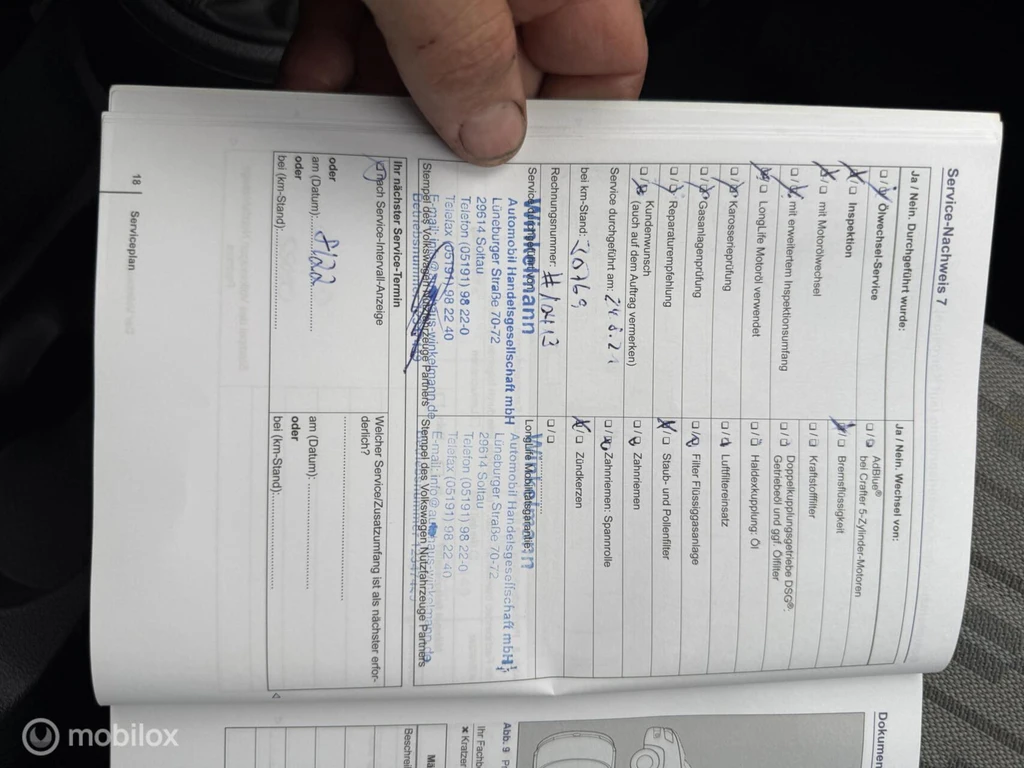 Service-Nachweis 7
Ja / Nein. Durchgeführt wurde:
☐ / ☒ Ölwechsel-Service
☒ / ☐ Inspektion
☒ / ☐ mit Motorölwechsel
☐ / ☒ mit erweitertem Inspektionsumfang
☒ / ☐ LongLife Motoröl verwendet
☐ / ☒ Karosserieprüfung
☐ / ☒ Gasanlagenprüfung
☐ / ☒ Reparaturempfehlung
☐ / ☒ Kundenwunsch
(auch auf dem Auftrag vermerken)
Service durchgeführt am: 24.8.21
bei km-Stand:
Rechnungsnummer:
Winkelmann
Automobil Handelsgesellschaft mbH
Lüneburger Straße 70-72
29614 Soltau
Telefon (05191) 98 22-0
Telefax (05191) 98 22 40
Stempel des Volkswagen Nutzfahrzeuge Partners
Ja / Nein. Wechsel von:
☐ / ☐ AdBlue®
bei Crafter 5-Zylinder-Motoren
☒ / ☐ Bremsflüssigkeit
☐ / ☐ Kraftstofffilter
☐ / ☐ Doppelkupplungsgetriebe DSG®:
Getriebeöl und ggf. Ölfilter
☐ / ☐ Haldexkupplung: Öl
☐ / ☐ Luftfiltereinsatz
☐ / ☒ Filter Flüssiggasanlage
☒ / ☐ Staub- und Pollenfilter
☐ / ☒ Zahnriemen
☐ / ☒ Zahnriemen: Spannrolle
☒ / ☐ Zündkerzen
☐ / ☐
LongLife Mobilitätsgarantie
Winkelmann
Automobil Handelsgesellschaft mbH
Lüneburger Straße 70-72
29614 Soltau
Telefon (05191) 98 22-0
Telefax (05191) 98 22 40
Stempel des Volkswagen Nutzfahrzeuge Partners
Ihr nächster Service-Termin
☒ nach Service-Intervall-Anzeige
oder
am (Datum):
oder
bei (km-Stand):
Welcher Service/Zusatzumfang ist als nächster erfor-
derlich?
am (Datum):
oder
bei (km-Stand):
18
Serviceplan
Dokumen
Abb. 9
Ihr Fachb
× Kratzer
Beschrei
mobilox